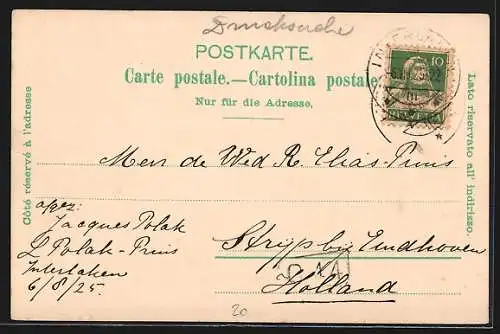 Drucksache
POSTKARTE.
Carte postale.—Cartolina postale
Nur für die Adresse.
Côté réservé à l'adresse
Lato riservato all' indirisso.
10
HELVETIA
Mevr de Wed R. Elias-Prins
Strijp bij Eindhoven
Holland
afgez:
Jacques Polak
L Polak-Prins
Interlaken
6/8/25.
20